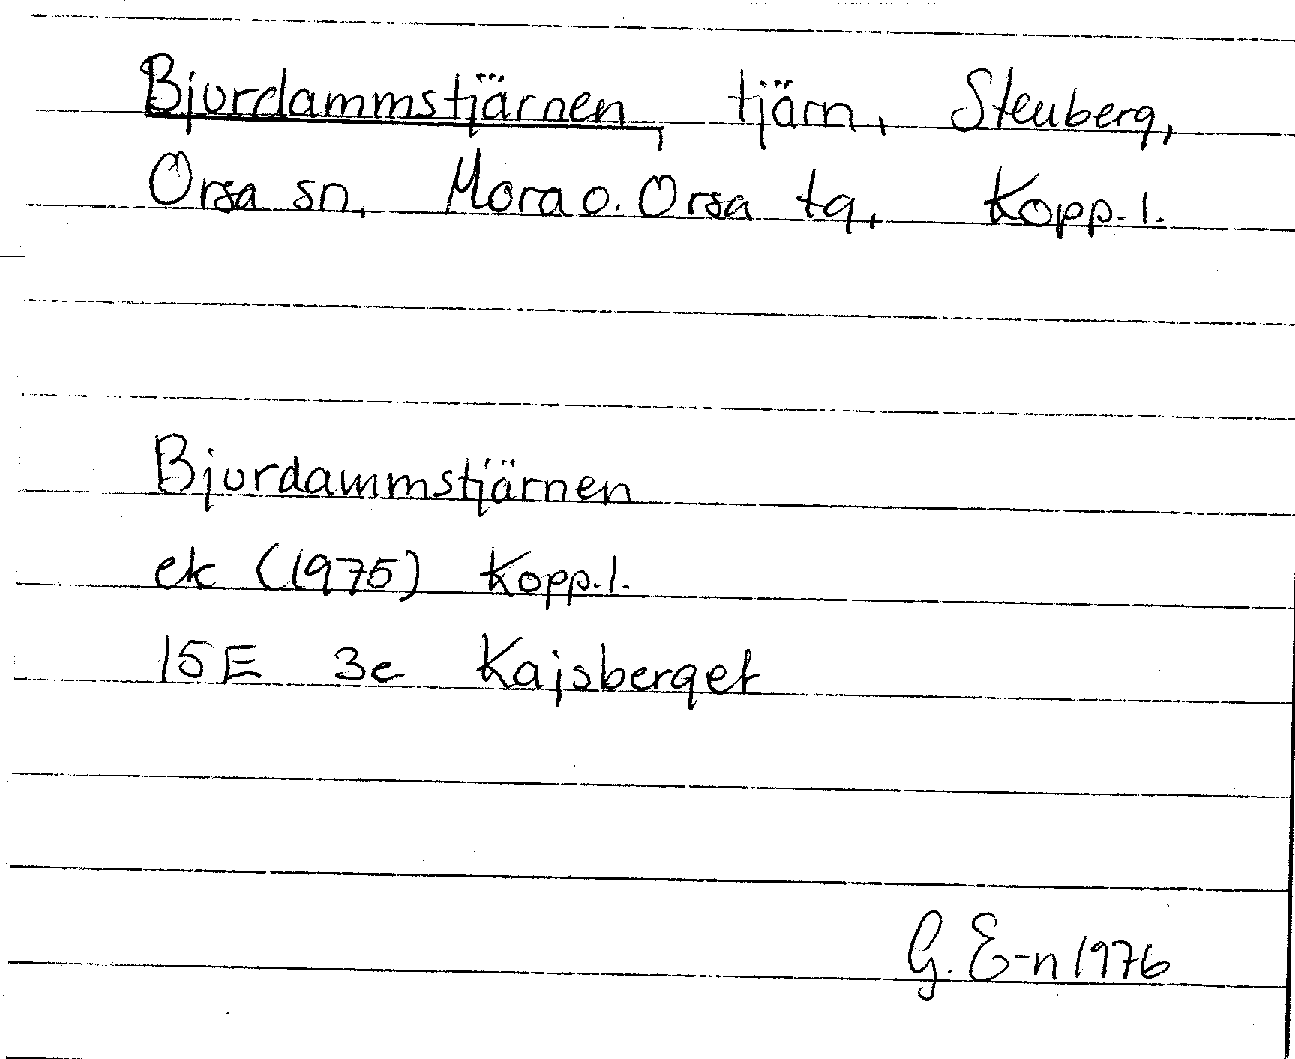 Bjurdammstjärnen, tjärn, Steuberg,
Orsa sn, Mora o. Orsa tg, Kopp. l.
Bjurdammstjärnen
ek (1975) Kopp. l.
15E 3e Kajsberget
G. E-n 1976